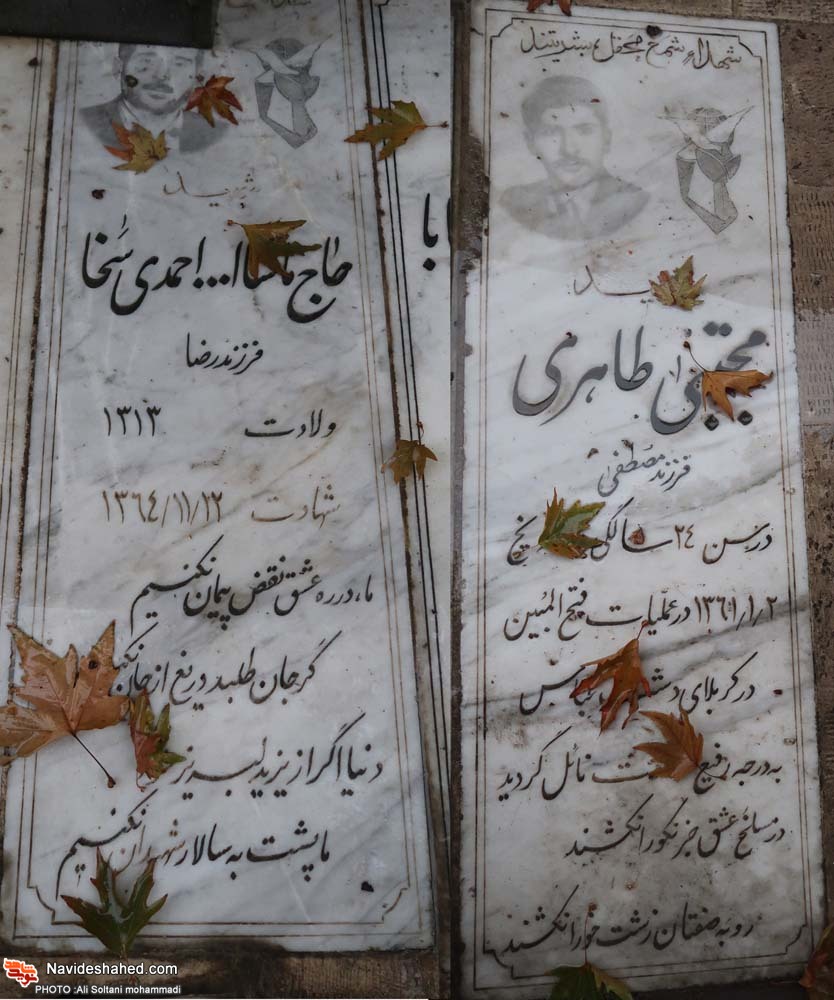 شهداء شمع محفل بشریتند
مجتبی طاهری
فرزند مصطفی
در سن ۲۴ سالگی
۱۳۶۱/۱/۲ در عملیات فتح المبین
در کربلای دشت عباس
به درجه رفیع نائل گردید
در مسلخ عشق جز نکو را نکشند
روبه صفتان زشت خو را نکشند
شهید
حاج ماشاا... احمدی سخا
فرزند رضا
ولادت ۱۳۱۳
شهادت ۱۳۶۴/۱۱/۲۲
ما، در ره عشق نقض پیمان نکنیم
گر جان طلبد دریغ از جان
دنیا اگر از یزید لبریز
ما پشت به سالار شهیدان نکنیم
Navideshahed.com
PHOTO :Ali Soltani mohammadi